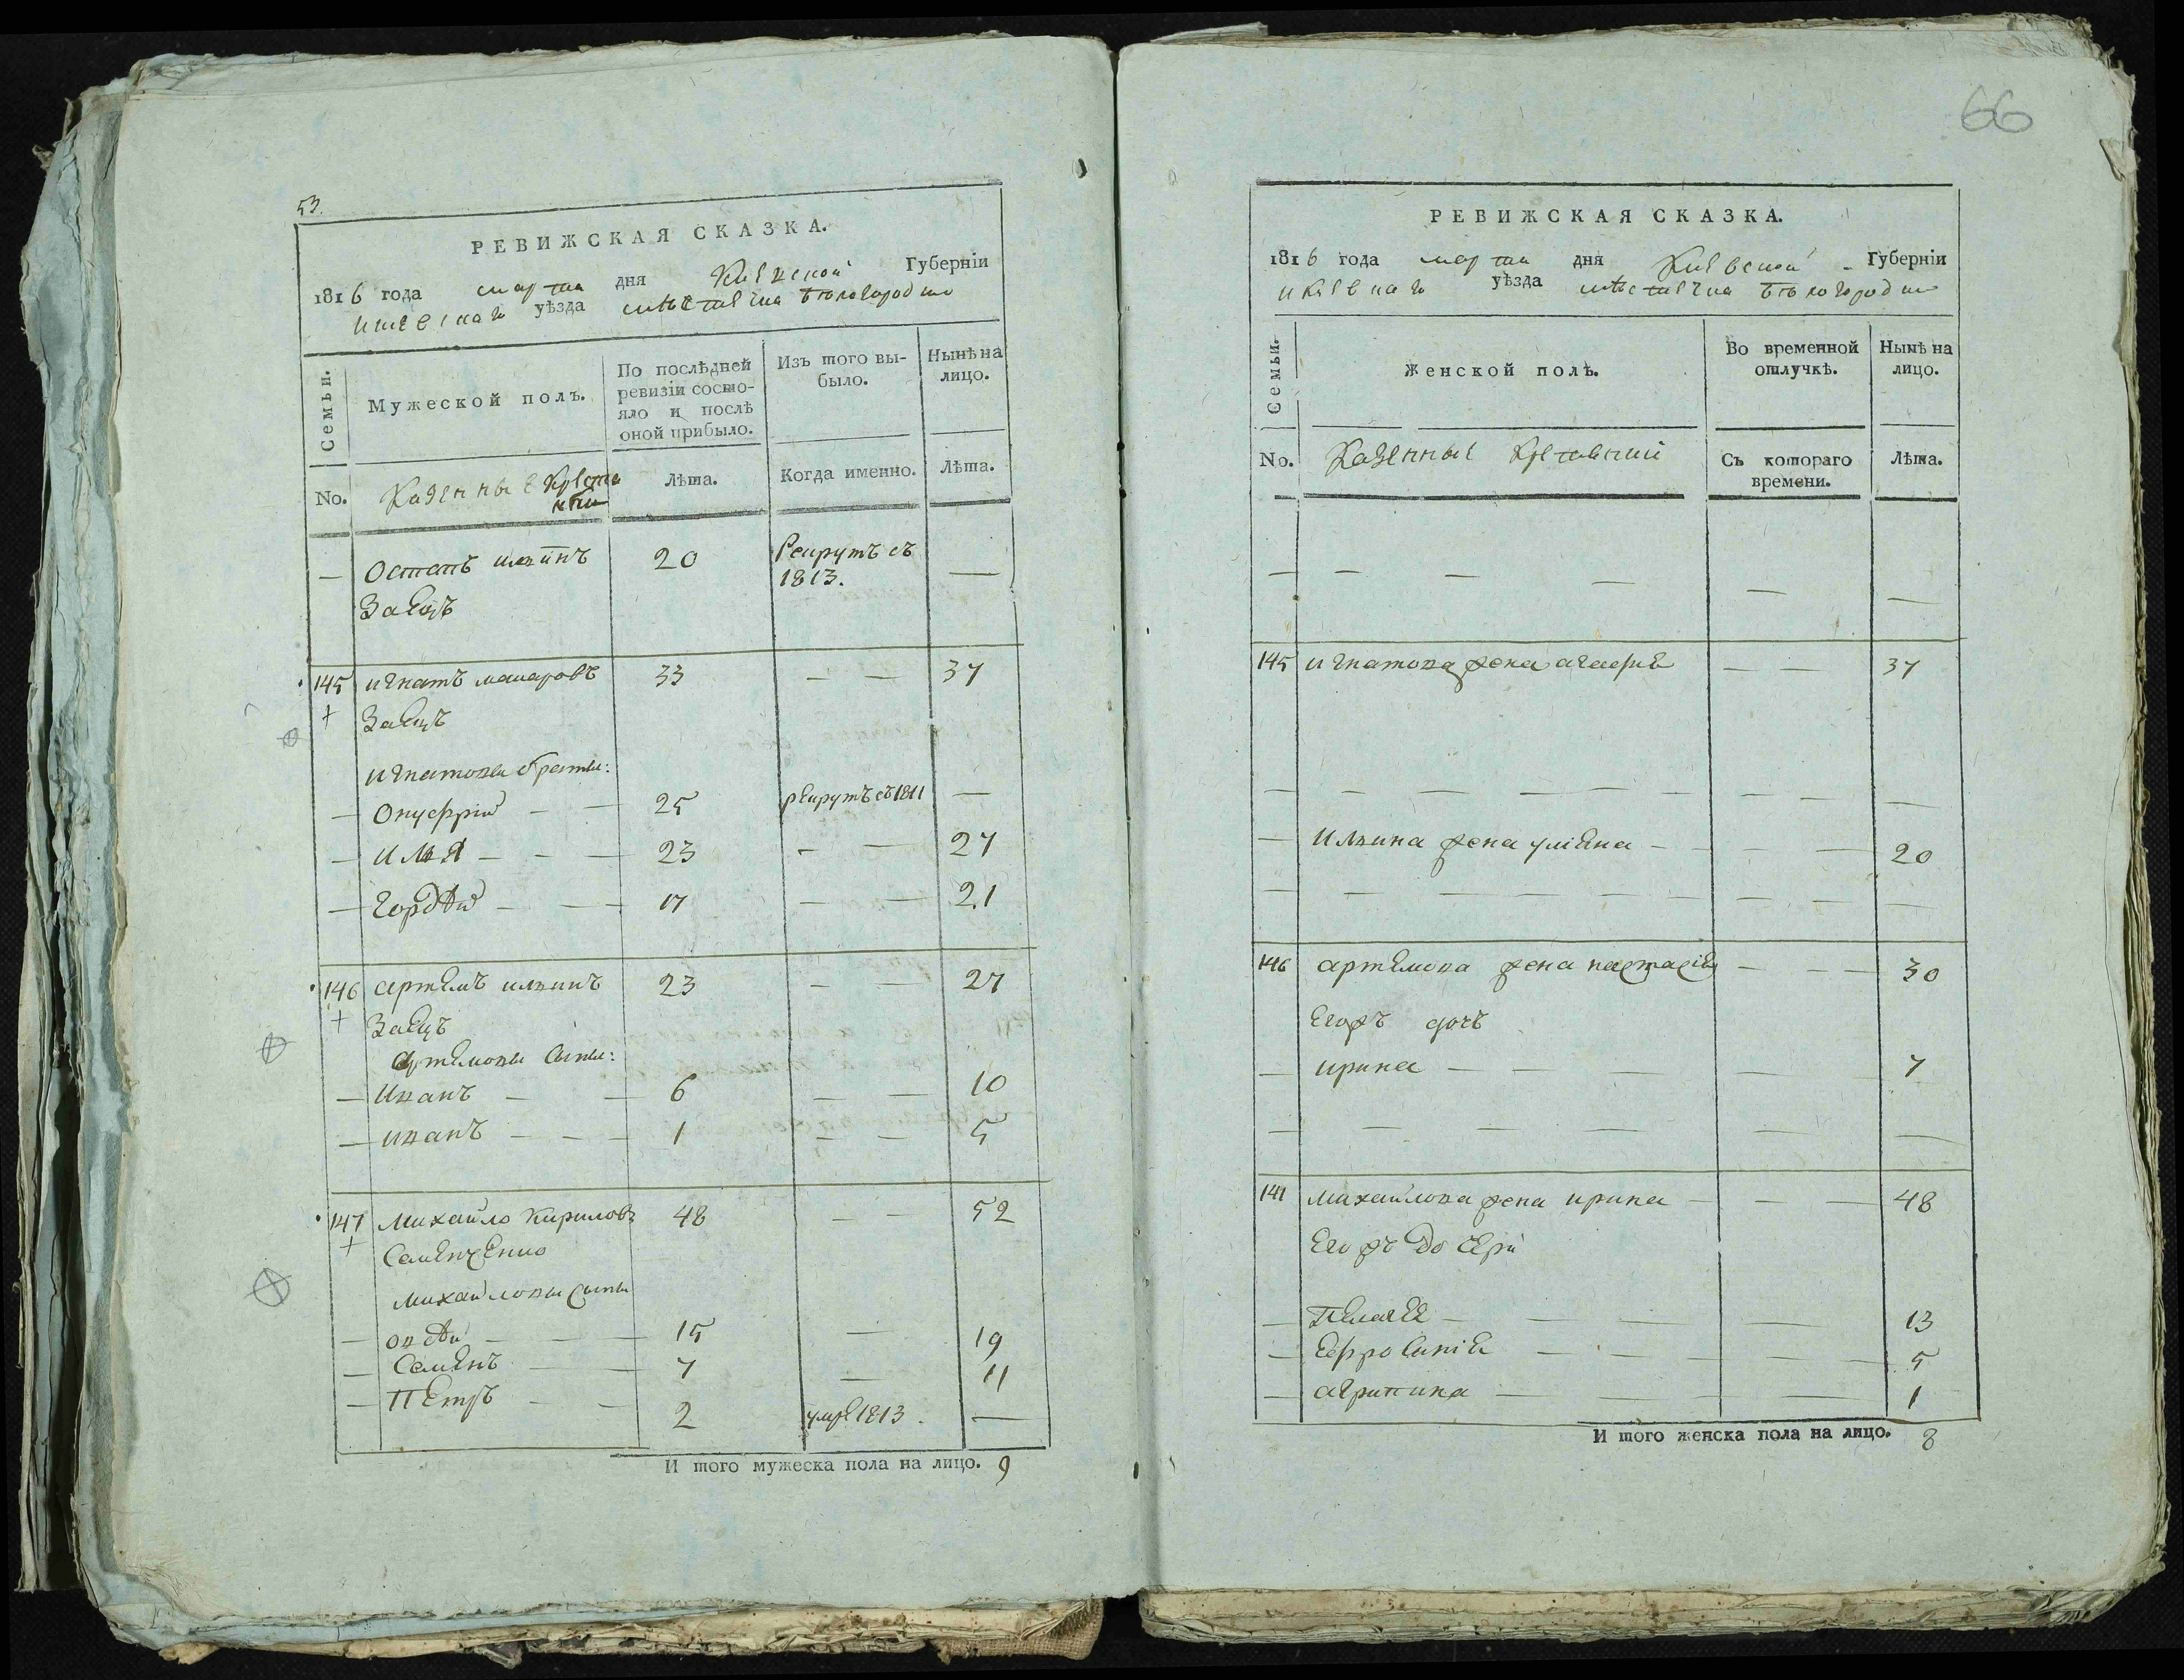 53.
РЕВИЖСКАЯ СКАЗКА.
1816 года марта дня Киевской Губерніи
Киевскаго уѣзда мѣстечка Бѣлогородки
Семьи.
Мужеской полъ.
По послѣдней ревизіи состояло и послѣ оной прибыло.
Изъ того выбыло.
Нынѣ на лицо.
No.
Казенные Крестьяне
Лѣта.
Когда именно.
Лѣта.
— Остапъ ильинъ 20 Рекрутъ съ 1813. —
Заецъ
145 игнатъ макаровъ 33 — — 37
Заецъ
игнатовы братьи:
— Онуфрій — — 25 рекрутъ съ 1811 —
— илья — — — 23 — — 27
— гордѣй — — 17 — — 21
146 артемъ ильинъ 23 — — 27
Заецъ
артемовы сыны:
— иванъ — — 6 — — 10
— иванъ — — — 1 — — 5
147 михайло кириловъ 48 — — 52
Семенченко
михайловы сыны
— овдѣй — — — 15 — 19
— Семенъ — — 7 — 11
— Петръ — — 2 умре 1813. —
И того мужеска пола на лицо. 9
66
РЕВИЖСКАЯ СКАЗКА.
1816 года марта дня Киевской Губерніи
Киевскаго уѣзда мѣстечка Бѣлогородки
Семьи.
Женской полъ.
Во временной отлучкѣ.
Нынѣ на лицо.
No.
Казенные Крестьяне
Съ котораго времени.
Лѣта.
— — — — — —
145 игнатова жена агафия — — 37
— — — — — — — — —
— ильина жена улияна — — — 20
— — — — — — — — —
146 артемова жена настасія — — — 30
Егожъ дочь
— ирина — — — — 7
— — — — — —
141 михайлова жена ирина — — — 48
Егожъ дочери
— Пелагея — — — — 13
— Ефросинія — — — — 5
— агрипина — — — 1
И того женска пола на лицо. 8